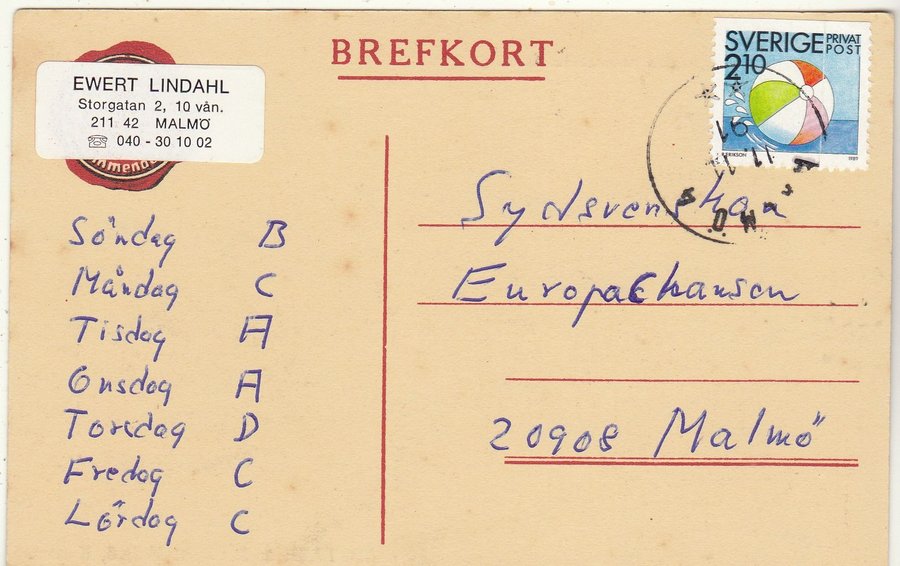 BREFKORT
EWERT LINDAHL
Storgatan 2, 10 vån.
211 42 MALMÖ
☏ 040 - 30 10 02
SVERIGE PRIVAT
POST
2.10
1989
91
11 11
Söndag B
Måndag C
Tisdag A
Onsdag A
Torsdag D
Fredag C
Lördag C
Sydsvenskan
Europachansen
20908 Malmö